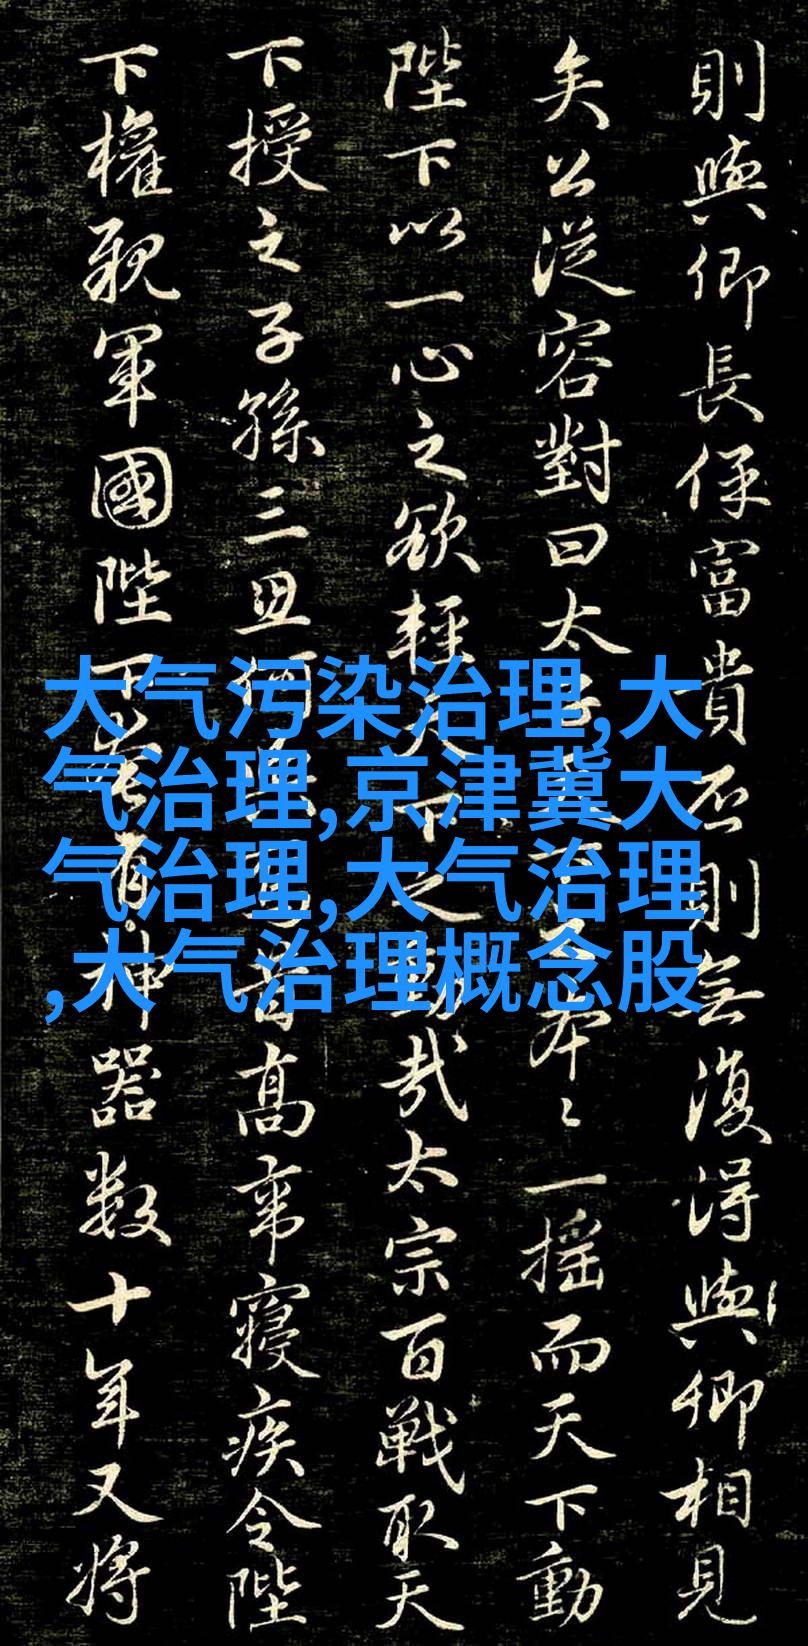 則與卿長保富貴否則無復得與卿相見
矣公從容對曰太本〻一摇而天下動
陛下以一心之欲輕天下之動哉太宗百戰取天
下授之子孫三世高帝寢疾令陛
下權親軍國陛下有神器数十年又將
大气污染治理,大
气治理,京津冀大
气治理,大气治理
,大气治理概念股